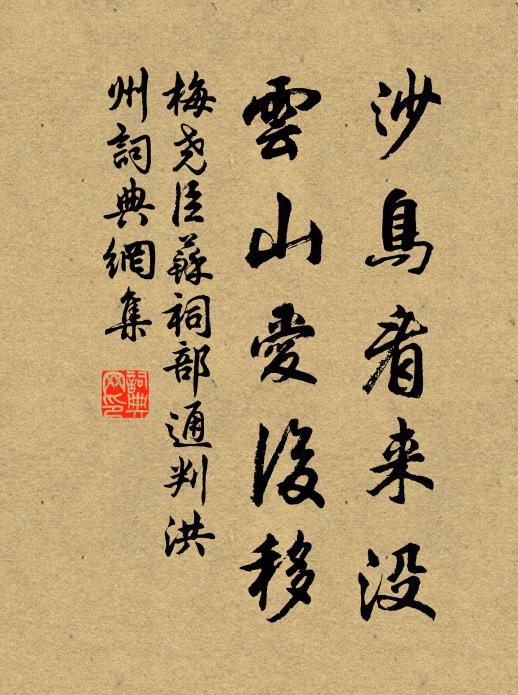 沙鳥看来没
雲山愛後移
梅尧臣蘇祠部通判洪
州詞典網集
詞典网印